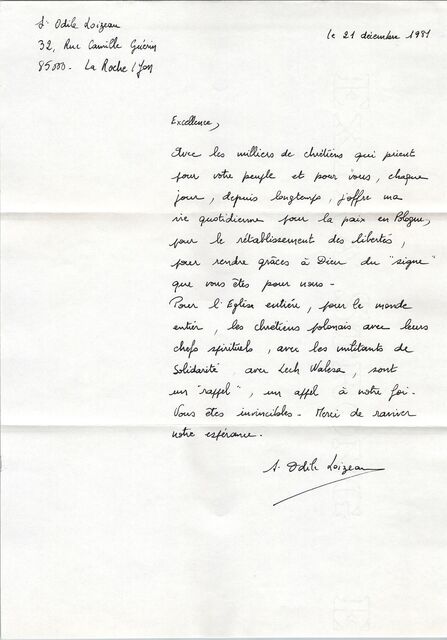 Sr Odile Loizeau
32, Rue Camille Guérin
85000. La Roche / Yon
le 21 décembre 1981
Excellence,
Avec les milliers de chrétiens qui prient
pour votre peuple et pour vous, chaque
jour, depuis longtemps, j'offre ma
vie quotidienne pour la paix en Pologne,
pour le rétablissement des libertés,
pour rendre grâces à Dieu du "signe"
que vous êtes pour nous -
Pour l'Eglise entière, pour le monde
entier, les chrétiens polonais avec leurs
chefs spirituels, avec les militants de
Solidarité, avec Lech Walesa, sont
un "rappel", un appel à notre foi.
Vous êtes invincibles - Merci de raviver
notre espérance.
Sr Odile Loizeau